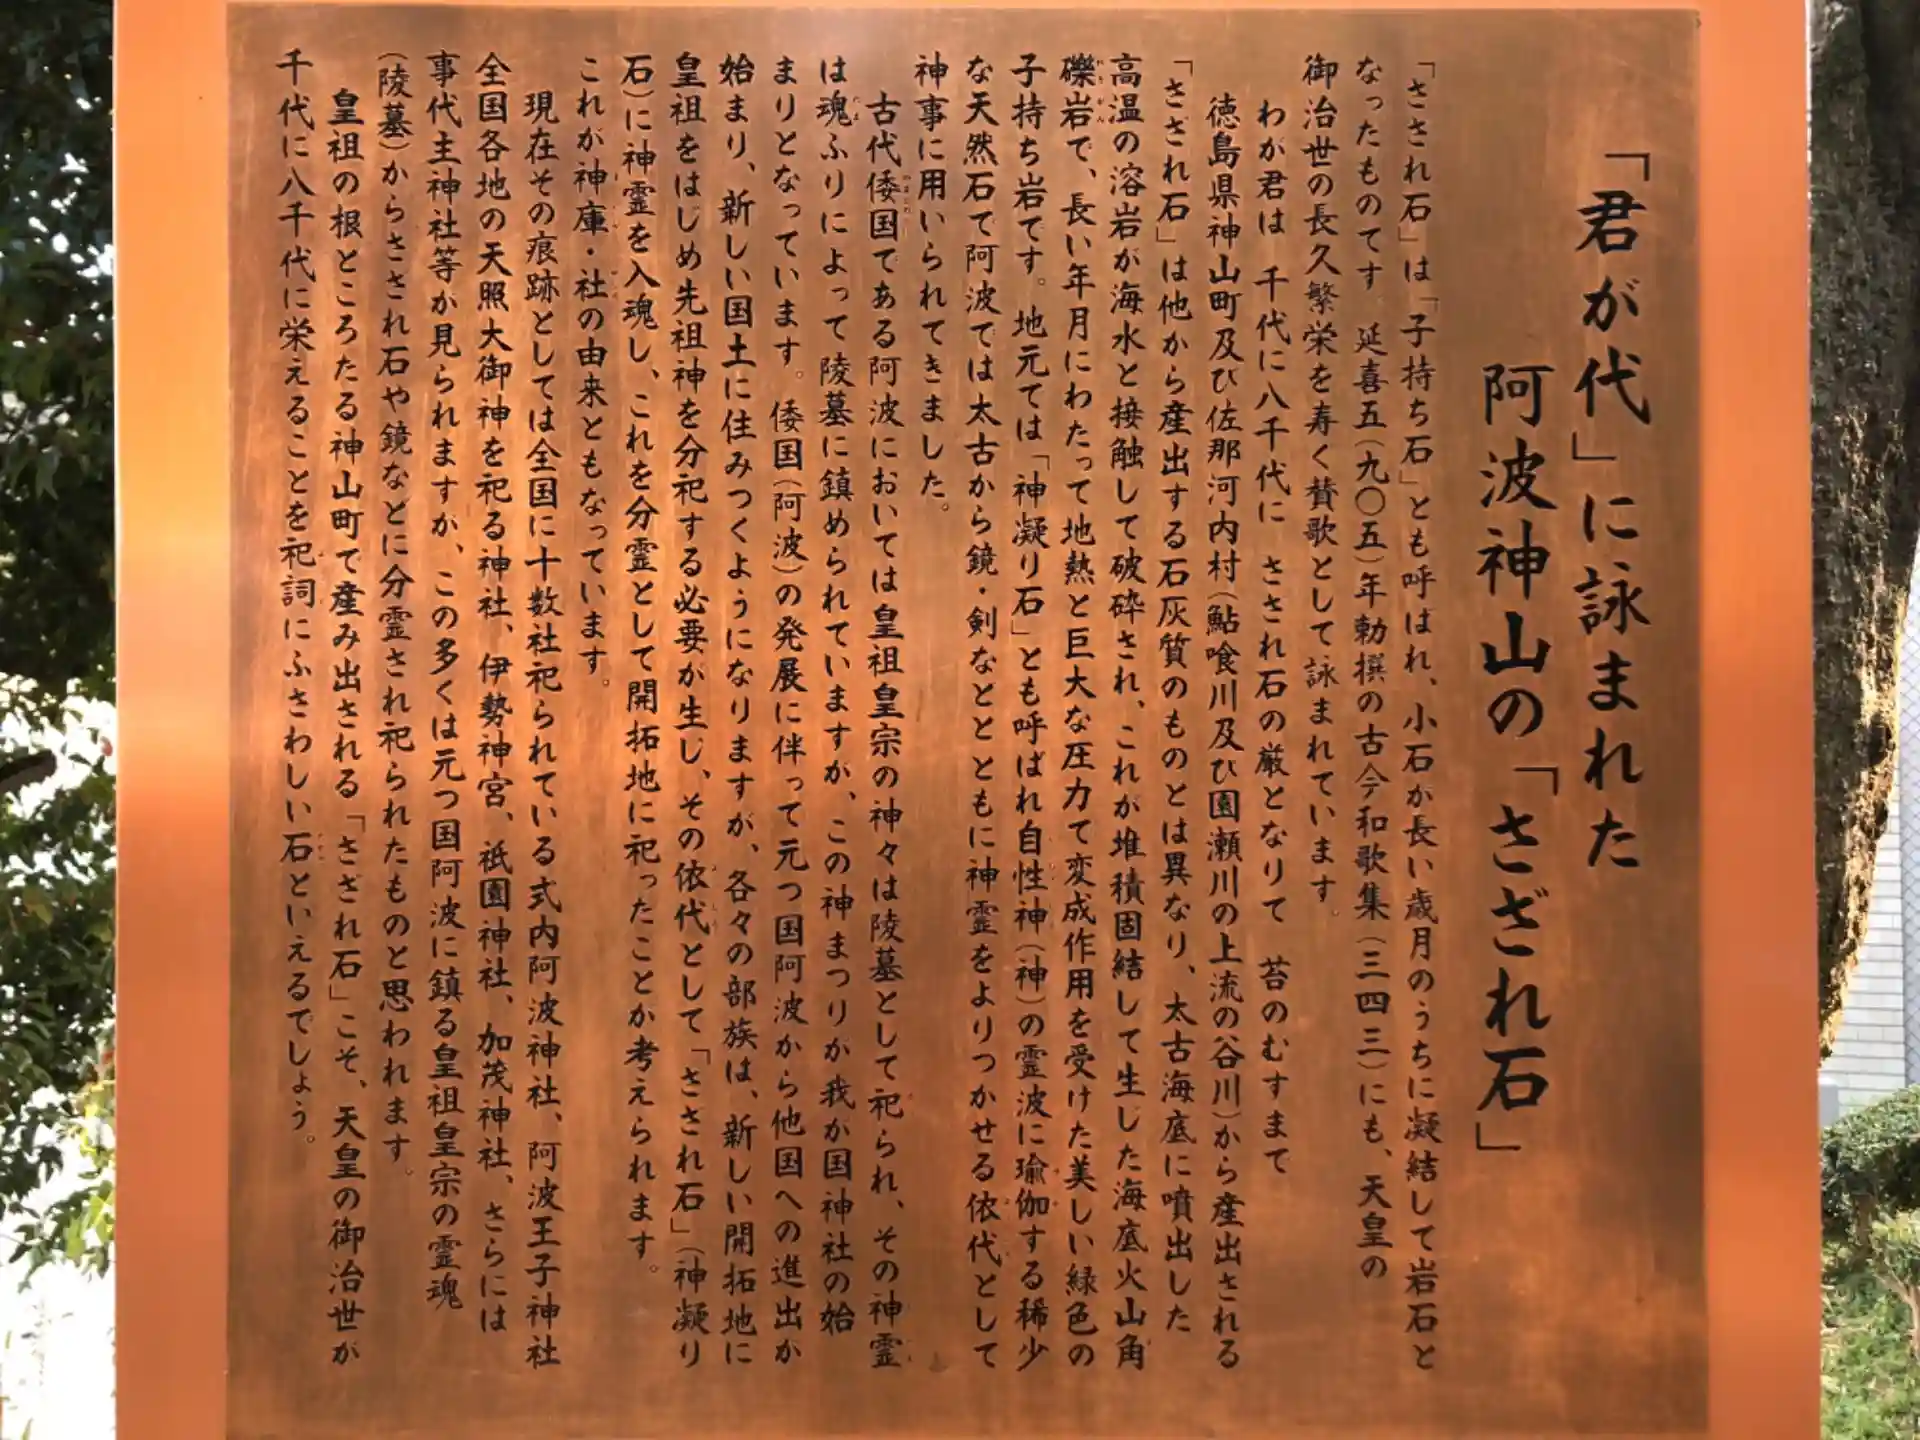 「君が代」に詠まれた
阿波神山の「さざれ石」
「さざれ石」は「子持ち石」とも呼ばれ、小石が長い歳月のうちに凝結して岩石と
なったものです 延喜五(九〇五)年勅撰の古今和歌集(三四三)にも、天皇の
御治世の長久繁栄を寿く賛歌として詠まれています。
わが君は 千代に八千代に さざれ石の巌となりて 苔のむすまで
徳島県神山町及び佐那河内村(鮎喰川及び園瀬川の上流の谷川)から産出される
「さざれ石」は他から産出する石灰質のものとは異なり、太古海底に噴出した
高温の溶岩が海水と接触して破砕され、これが堆積固結して生じた海底火山角
礫岩で、長い年月にわたって地熱と巨大な圧力で変成作用を受けた美しい緑色の
子持ち岩です。地元では「神凝り石」とも呼ばれ自性神(神)の霊波に瑜伽する稀少
な天然石で阿波では太古から鏡・剣などとともに神霊をよりつかせる依代として
神事に用いられてきました。
古代倭国である阿波においては皇祖皇宗の神々は陵墓として祀られ、その神霊
は魂ふりによって陵墓に鎮められていますが、この神まつりが我が国神社の始
まりとなっています。倭国(阿波)の発展に伴って元つ国阿波から他国への進出が
始まり、新しい国土に住みつくようになりますが、各々の部族は、新しい開拓地に
皇祖をはじめ先祖神を分祀する必要が生じ、その依代として「さざれ石」(神凝り
石)に神霊を入魂し、これを分霊として開拓地に祀ったことが考えられます。
これが神庫・社の由来ともなっています。
現在その痕跡としては全国に十数社祀られている式内阿波神社、阿波王子神社
全国各地の天照大御神を祀る神社、伊勢神宮、祇園神社、加茂神社、さらには
事代主神社等が見られますが、この多くは元つ国阿波に鎮る皇祖皇宗の霊魂
(陵墓)からさざれ石や鏡などに分霊され祀られたものと思われます。
皇祖の根どころたる神山町で産み出される「さざれ石」こそ、天皇の御治世が
千代に八千代に栄えることを祀詞にふさわしい石といえるでしょう。